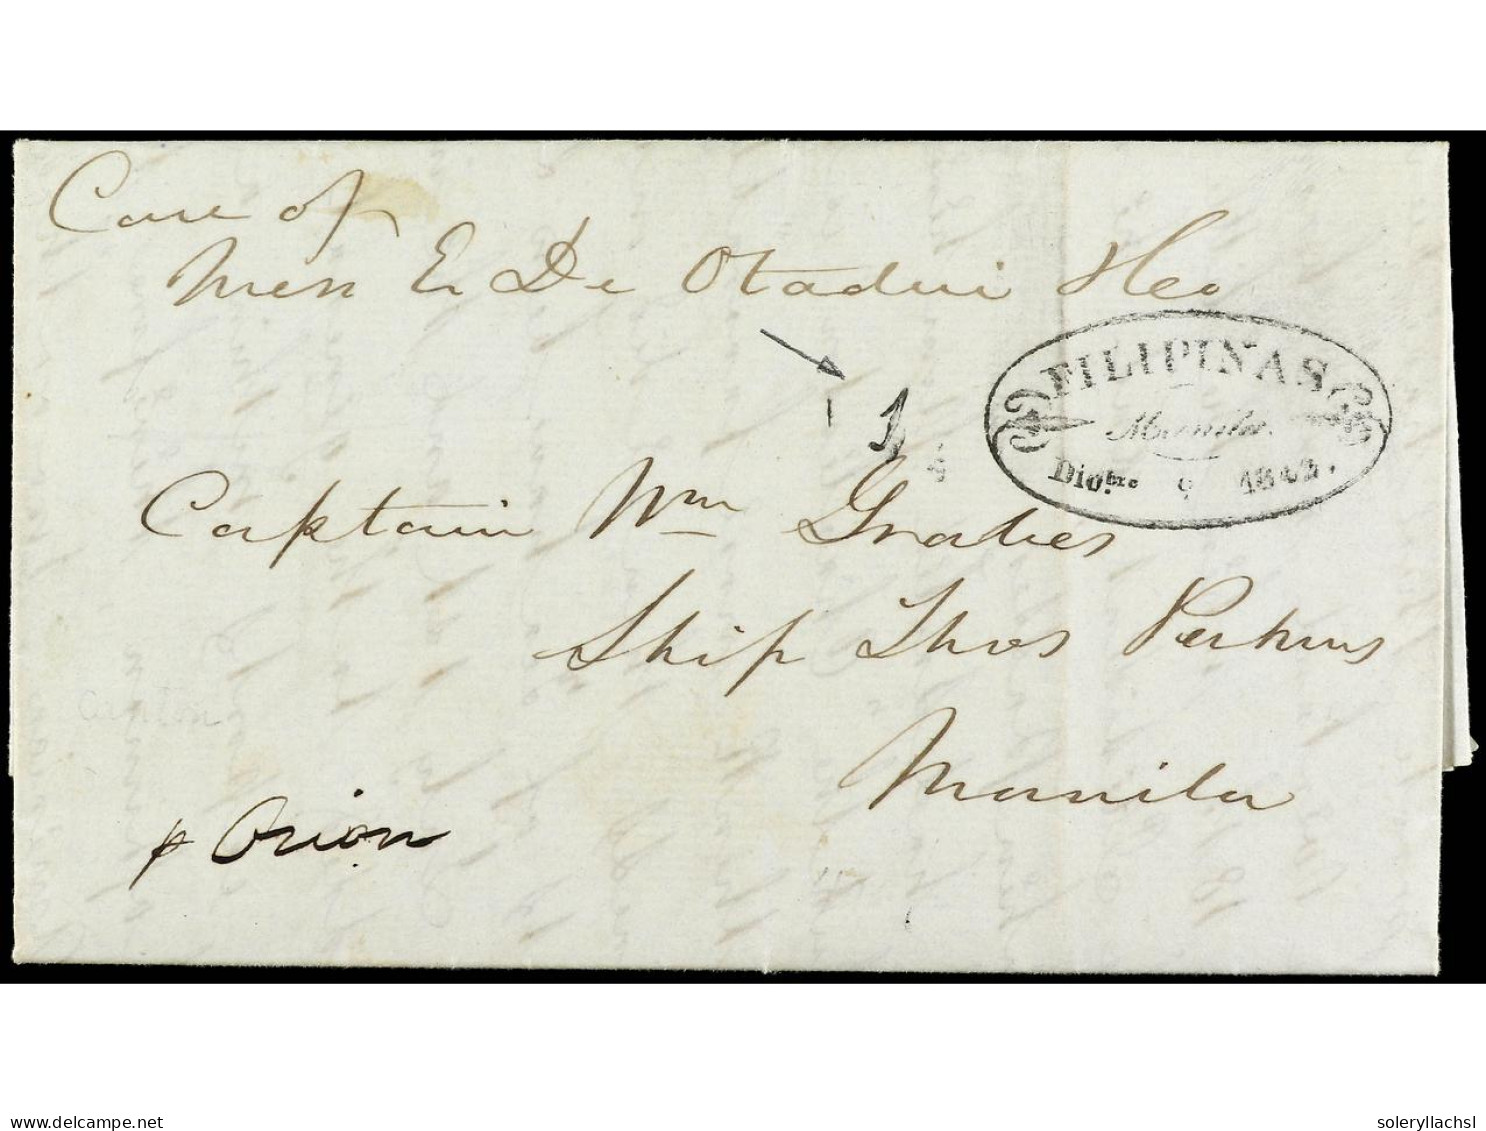 Care of
Mess E. De Otadui & Co
1
FILIPINAS
Manila.
Dic.bre 9 1842.
Captain Wm Graves
Ship Thos Perkins
Manila
Canton
p Orion
delcampe.net
soleryllachsl